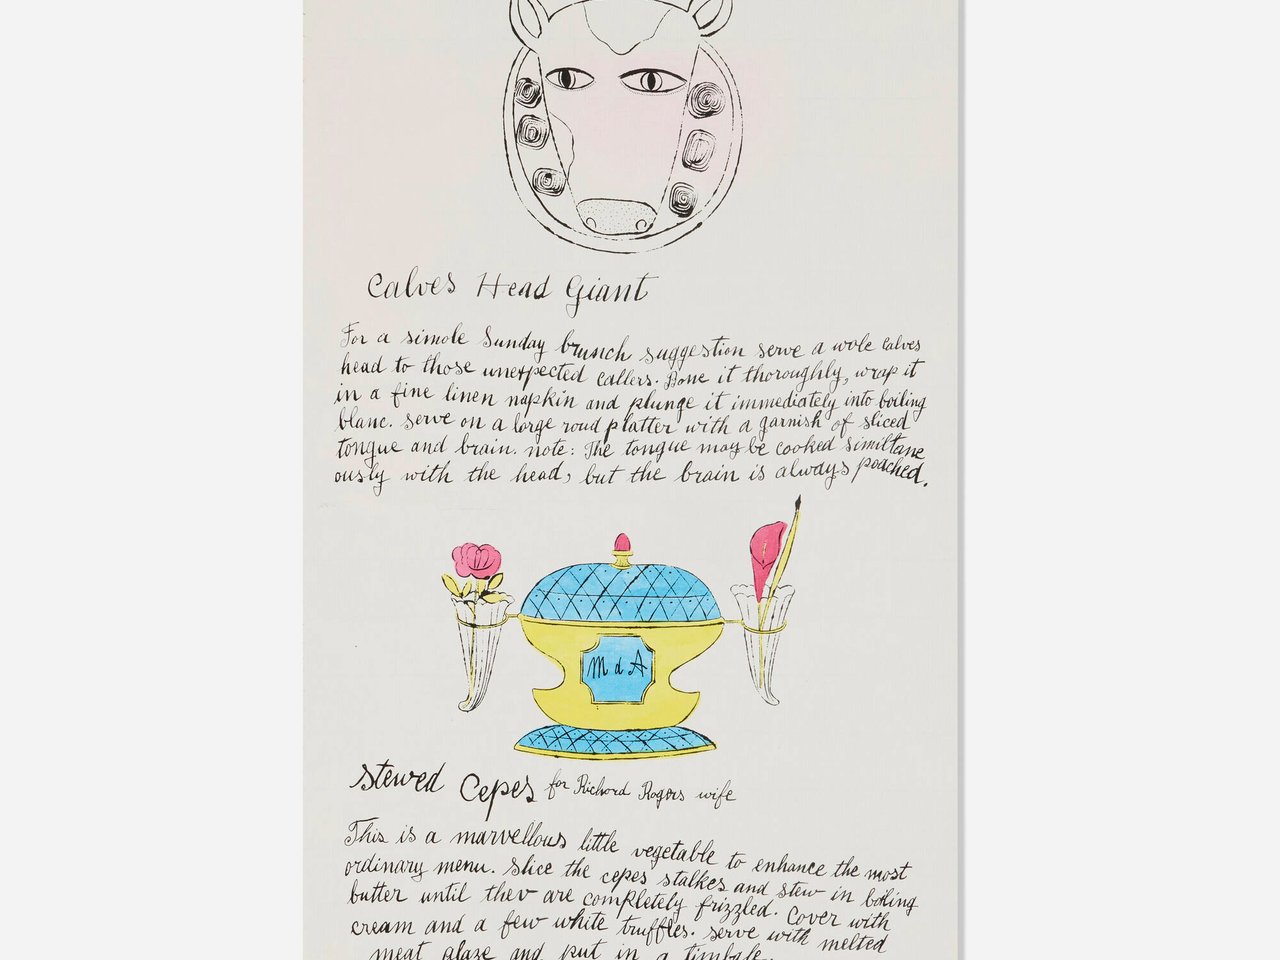 Calves Head Giant
For a simole Sunday brunch suggestion serve a wole calves
head to those unexpected callers. Bone it thoroughly, wrap it
in a fine linen napkin and plunge it immediately into boiling
blanc. serve on a large roud platter with a garnish of sliced
tongue and brain. note: The tongue may be cooked simil tane
ously with the head, but the brain is always poached.
M d A
Stewed Cepes for Richard Rogers wife
This is a marvellous little vegetable to enhance the most
ordinary menu. Slice the cepes stalkes and stew in boiling
butter until thev are completely frizzled. Cover with
cream and a few white truffles. serve with melted
meat glaze and put in a timbale.